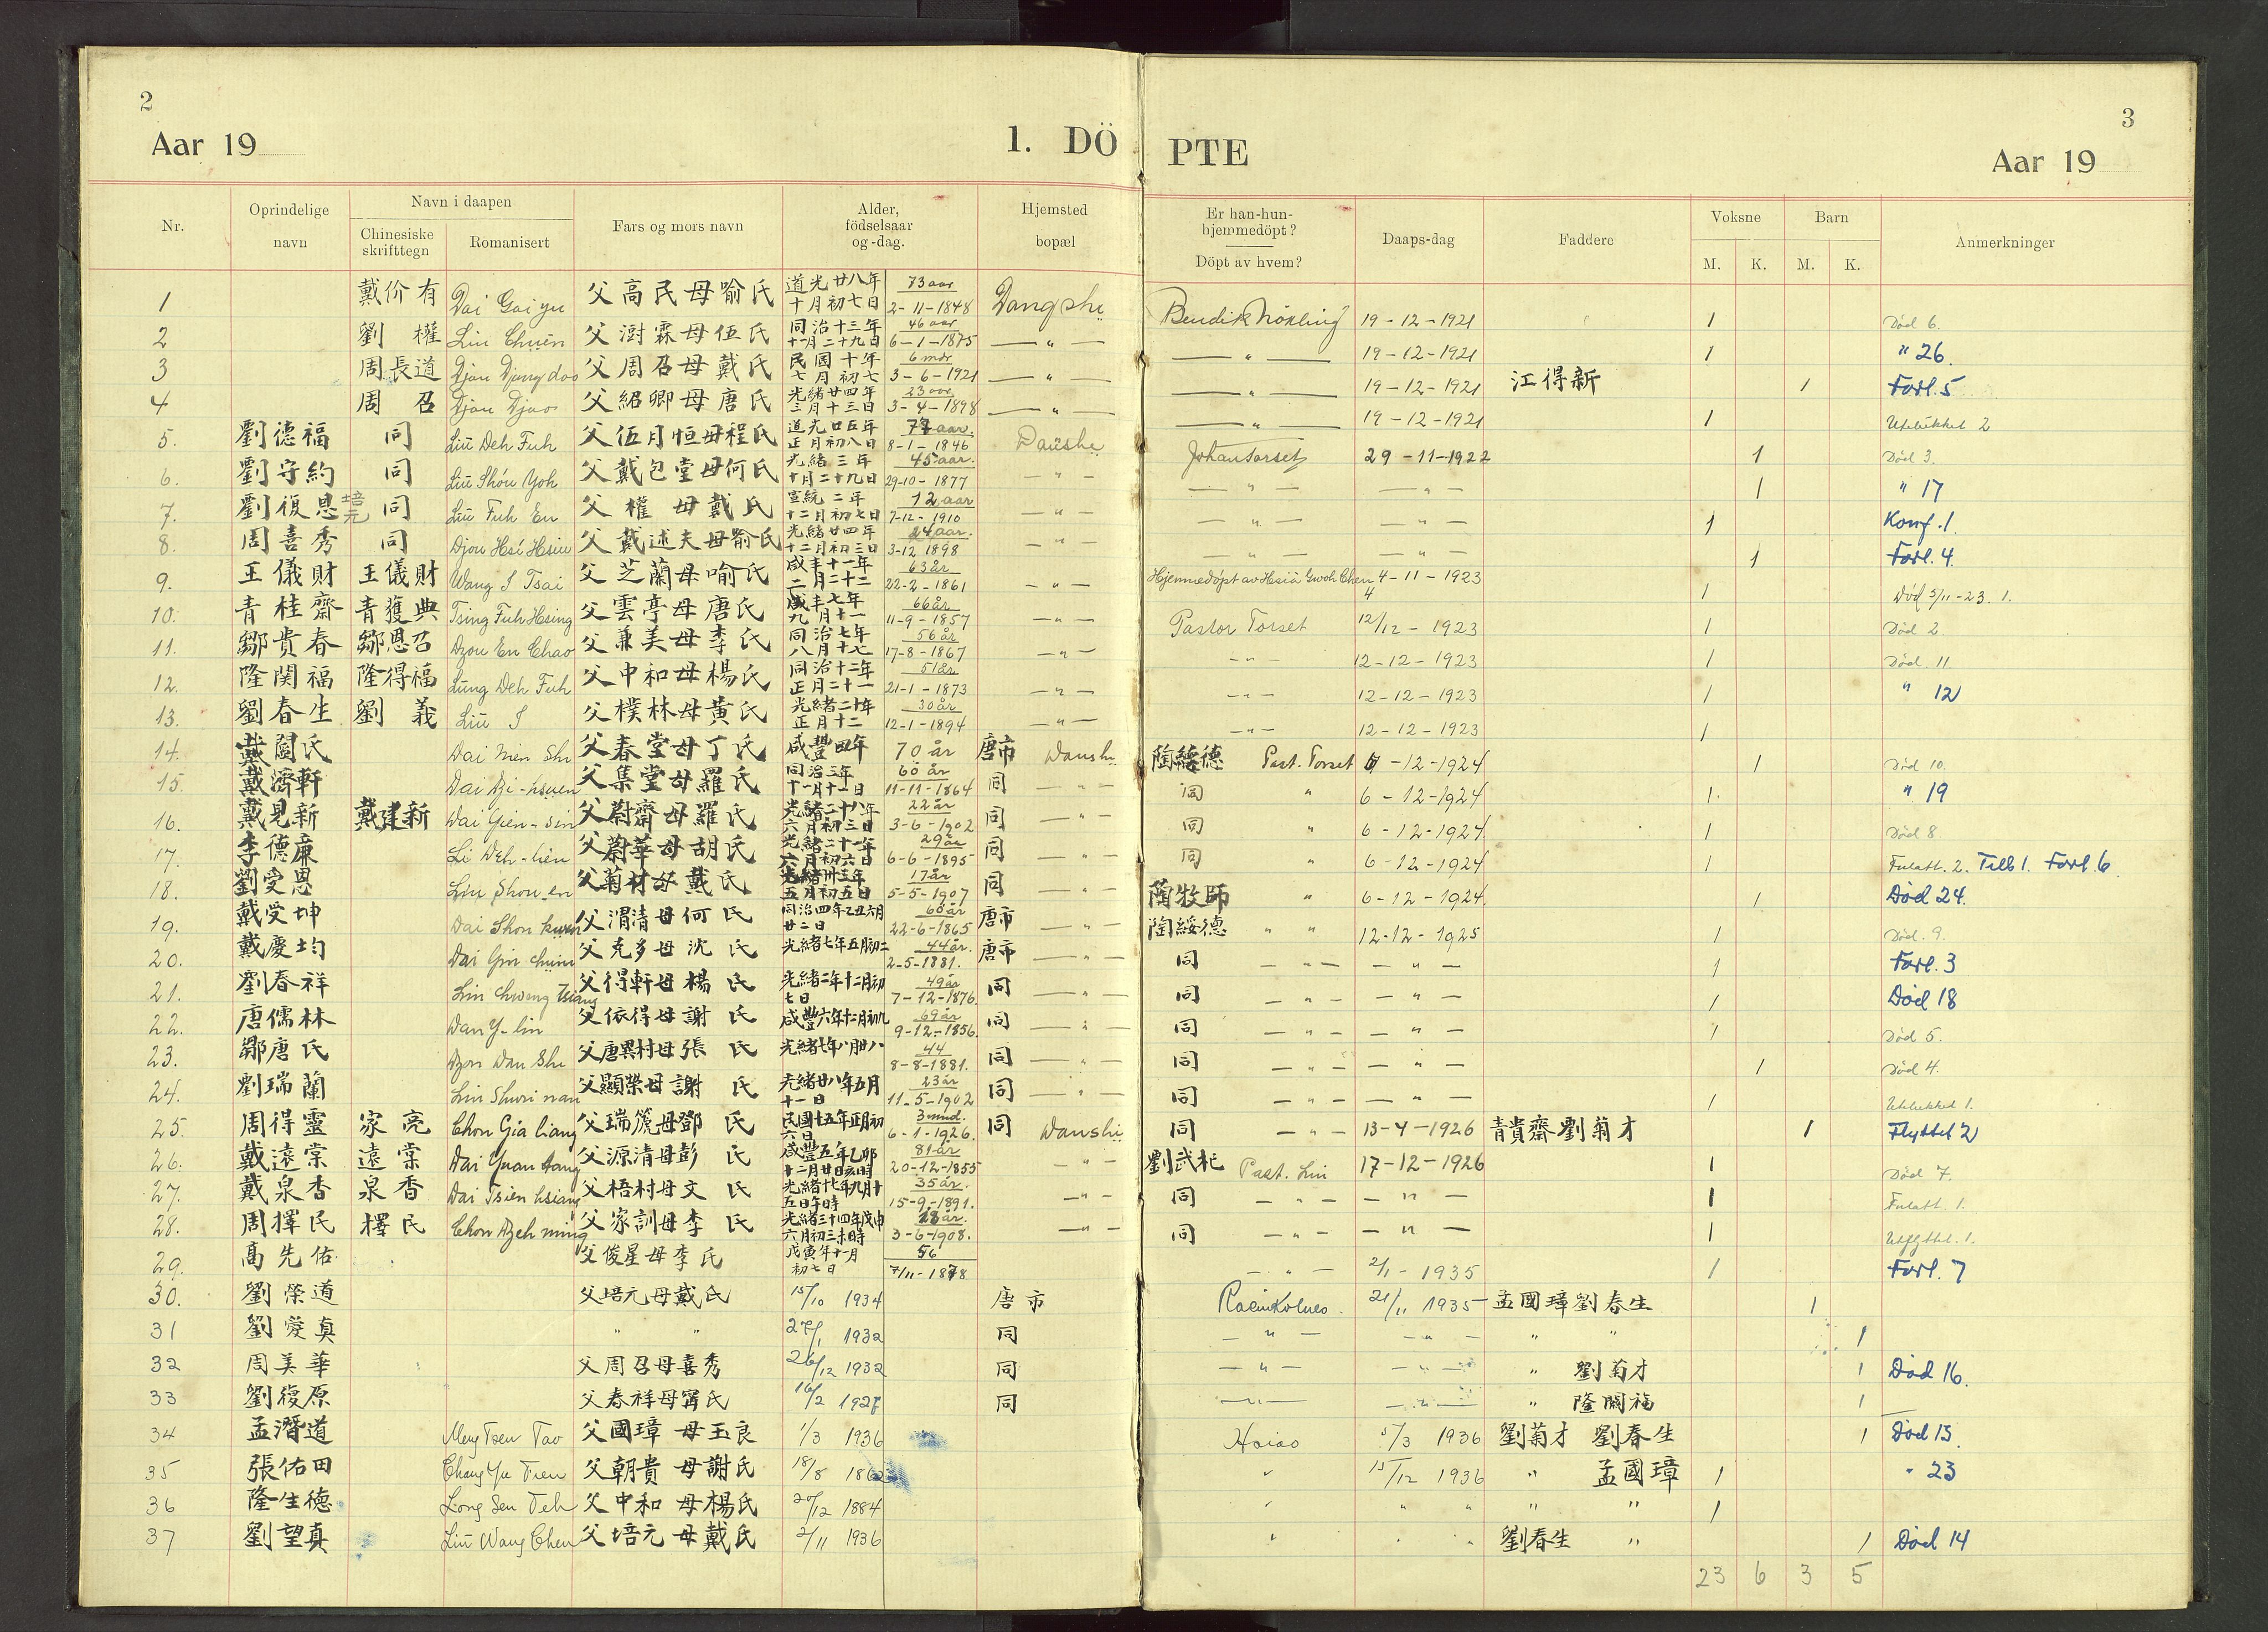 2
3
Aar 19
1. DÖ
PTE
Aar 19
Nr.
Oprindelige navn
Navn i daapen
Chinesiske skrifttegn
Romanisert
Fars og mors navn
Alder, födselsaar og -dag.
Hjemsted bopæl
Er han-hun-hjemmedöpt?
Döpt av hvem?
Daaps-dag
Faddere
Voksne
M.
K.
Barn
M.
K.
Anmerkninger
1 戴价有 Dai Gai yu 父高民母喻氏 道光廿八年十月初七日 73 aar 2-11-1848 Dangshi 19-12-1921 1 Død 6.
2 劉權 Liu Chuën 父澍霖母伍氏 同治十三年十一月二十九日 46 aar 6-1-1875 — " — — " — 19-12-1921 1 " 26.
3 周長道 Djou Djang doo 父周召母戴氏 民國十年七月初七 6 mdr 3-6-1921 — " — — " — 19-12-1921 江得新 1 Forl. 5
4 周召 Djou Djao 父紹卿母唐氏 光緒廿四年三月十三日 23 aar 3-4-1898 — " — — " — 19-12-1921 1 Utelukket 2
5. 劉德福 同 Liu Deh Fuh 父伍月恒母程氏 道光廿五年正月初八日 77 aar. 8-1-1846 Danshe Johan Torset 29-11-1922 1 Død 3.
6. 劉守約 同 Liu Shou Yoh 父戴包堂母何氏 光緒三年十月二十九日 45 aar. 29-10-1877 — " — — " — — " — 1 " 17
7. 劉復恩 培元 同 Liu Fuh En 父權母戴氏 宣統二年十二月初七日 12 aar 7-12-1910 — " — — " — — " — 1 Konf. 1.
8. 周喜秀 同 Djou Hsi Hsiu 父戴述夫母喻氏 光緒廿四年十二月初三日 24 aar. 3-12 1898 — " — — " — — " — 1 Forl. 4.
9. 王儀財 王儀財 Wang I Tsai 父芝蘭母喻氏 咸丰十一年二月二十二 63 år 22-2-1861 — " — Hjemmedöpt av Hsiä Gwoh Chen 4-11-1923 1 Död 5/11-23. 1.
10. 青桂齋 青獲典 Tsing Fuh Hsing 父雲亭母唐氏 咸丰七年九月十一 66 år 11-9-1857 — " — Pastor Torset 12/12-1923 1 Død 2.
11. 鄒貴春 鄒恩召 Dzou En Chao 父兼美母李氏 同治七年八月十七 56 år 17-8-1867 — " — — " — 12-12-1923 1 Død. 11.
12. 隆関福 隆得福 Lung Deh Fuh 父中和母楊氏 同治十二年正月二十一 51 år 21-1-1873 — " — — " — 12-12-1923 1 " 12
13. 劉春生 劉義 Liu I 父樸林母黃氏 光緒二十年正月十二 30 år 12-1-1894 — " — — " — 12-12-1923 1
14. 戴闔氏 Dai Men Shi 父春堂母丁氏 咸豐四年 70 år 唐市 Danshi 陶綏德 Past. Torset 6-12-1924 1 Død 10.
15. 戴濟軒 Dai Dzi-hsuen 父集堂母羅氏 同治三年十一月十一日 60 år 11-11-1864 同 — " — 同 " 6-12-1924 1. " 19
16. 戴見新 戴建新 Dai Gien-sin 父蔚齋母羅氏 光緒二十八年六月初三日 22 år 3-6-1902 同 — " — 同 " 6-12-1924. 1 Død 8.
17. 李德廉 Li Deh-lien 父蔚華母胡氏 光緒二十一年六月初六日 29 år 6-6-1895 同 — " — 同 " 6-12-1924 1 Fulatt. 2. Tilb 1. Forl. 6.
18. 劉受恩 Liu Shou-en 父菊村母戴氏 光緒卅三年五月初五日 17 år 5-5-1907 同 — " — 陶牧師 " 6-12-1924. 1 Död 24.
19. 戴受坤 Dai Shou kwen 父渭清母何氏 同治四年乙丑六月廿二日 60 år 22-6-1865 唐市 — " — 陶綏德 " " 12-12-1925 1 Død. 9.
20. 戴慶均 Dai Gin chuin 父克多母沈氏 光緒七年五月初二 44 år. 2-5-1881. 唐市 — " — 同 — " — — " — 1 Forl. 3
21. 劉春祥 Liu Chweng Tsiang 父得軒母楊氏 光緒二年十二月初七日 49 år 7-12-1876. 同 — " — 同 — " — — " — 1 Död 18
22. 唐儒林 Dan Y-lin 父依得母謝氏 咸豐六年十二月初九 69 år 9-12-1856. 同 — " — 同 — " — — " — 1 Død 5.
23. 鄒唐氏 Dzou Dan Shi 父唐異村母張氏 光緒七年八月廿八 44 8-8-1881. 同 — " — 同 — " — — " — 1 Død 4.
24. 劉瑞蘭 Liu Shuri nan 父顯榮母謝氏 光緒廿八年五月十一日 23 år 11-5-1902 同 — " — 同 — " — — " — 1 Utelukket 1.
25. 周得靈 家亮 Chou Gia liang 父瑞篪母鄧氏 民國十五年正月初六日 3 mnd. 6-1-1926. 同 Danshi 同 — " — 13-4-1926 青貴齋 劉菊才 1 Flyttet 2
26. 戴遠棠 遠棠 Dai Yuan tang 父源清母彭氏 咸豐五年乙卯十二月廿日亥時 81 år 20-12-1855 — " — 劉武杞 Past. Liu 17-12-1926 1 Død 7.
27. 戴泉香 泉香 Dai Tsien hsiang 父梧村母文氏 光緒十七年九月十五日午時 35 år. 15-9-1891. — " — 同 — " — — " — 1 Fulatt. 1.
28. 周擇民 擇民 Chou Dzeh ming 父家訓母李氏 光緒三十四年戊申六月初三未時 18 år. 3-6-1908. — " — 同 — " — — " — 1 Utflyttet. 1.
29. 高先佑 父俊星母李氏 戊寅年十一月初七日 56 7/11-1878 — " — 2/1-1935 1 Forl. 7
30. 劉榮道 父培元母戴氏 15/10 1934 唐市 21/11 1935 孟國璋 劉春生 1
31 劉愛真 " " 1932 同 — " — — " — " " 1
32 周美華 父周召母喜秀 26/12 1932 同 — " — — " — " 劉菊才 1 Död 16.
33 劉復原 父春祥母甯氏 16/2 1927 同 — " — — " — " 隆関福 1
34 孟潛道 Meng Tsen Tao 父國璋 母玉良 1/3 1936 Hsiao 5/3 1936 劉菊才 劉春生 1 Död 15.
35 張佑田 Chang Yu Tien 父朝貴 母謝氏 18/8 1862 " 15/12 1936 " 孟國璋 1 " 23
36 隆生德 Long Sen Teh 父中和 母楊氏 20/12 1884 " " " " " 1
37 劉望真 Liu Wang Chen 父培元 母戴氏 2/11 1936 " " " 劉春生 " 1 Död 14
23 6 3 5